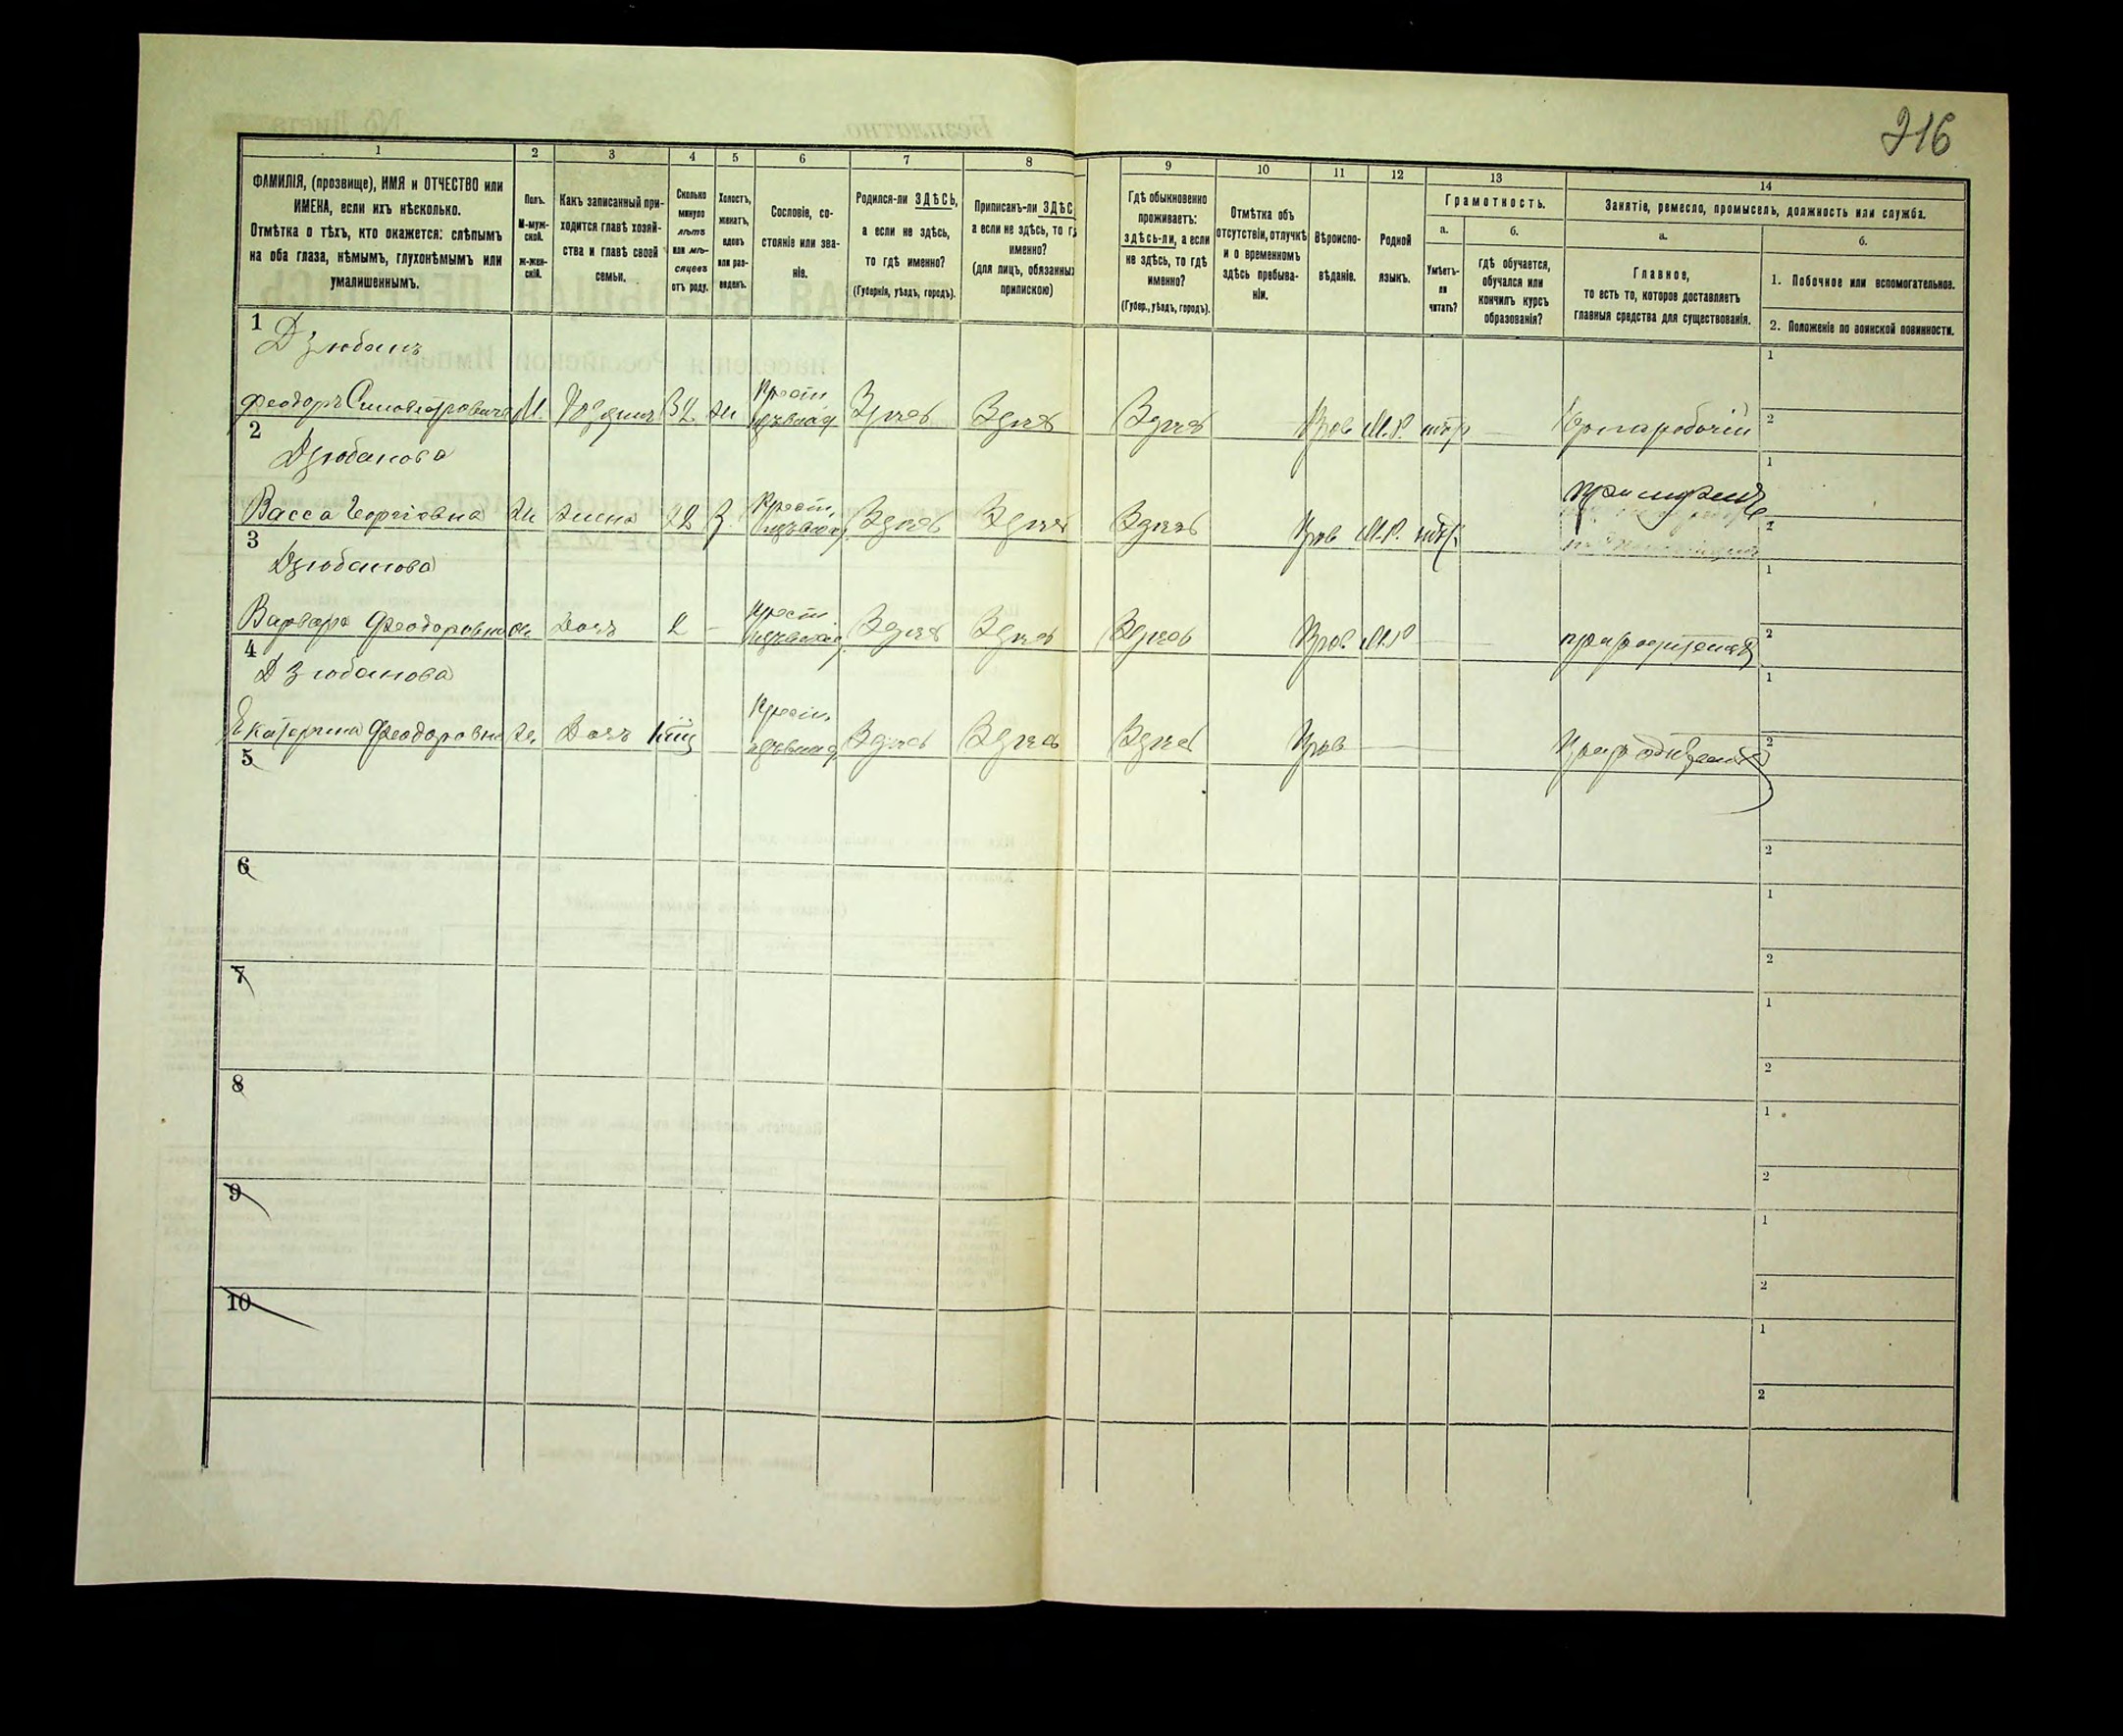 216
1
2
3
4
5
6
7
8
9
10
11
12
13
14
ФАМИЛІЯ, (прозвище), ИМЯ и ОТЧЕСТВО или
ИМЕНА, если ихъ нѣсколько.
Отмѣтка о тѣхъ, кто окажется: слѣпымъ
на оба глаза, нѣмымъ, глухонѣмымъ или
умалишеннымъ.
Полъ.
М-муж-
ской.
ж-жен-
скій.
Какъ записанный при-
ходится главѣ хозяй-
ства и главѣ своей
семьи.
Сколько
минуло
лѣтъ
или мѣ-
сяцевъ
отъ роду.
Холостъ,
женатъ,
вдовъ
или раз-
веденъ.
Сословіе, со-
стояніе или зва-
ніе.
Родился-ли ЗДѢСЬ,
а если не здѣсь,
то гдѣ именно?
(Губернія, уѣздъ, городъ).
Приписанъ-ли ЗДѢС
а если не здѣсь, то г
именно?
(для лицъ, обязанны
припискою)
Гдѣ обыкновенно
проживаетъ:
здѣсь-ли, а если
не здѣсь, то гдѣ
именно?
(Губер., уѣздъ, городъ).
Отмѣтка объ
отсутствіи, отлучкѣ
и о временномъ
здѣсь пребыва-
ніи.
Вѣроиспо-
вѣданіе.
Родной
языкъ.
Грамотность.
а.
Умѣетъ-
ли
читать?
б.
гдѣ обучается,
обучался или
кончилъ курсъ
образованія?
Занятіе, ремесло, промыселъ, должность или служба.
а.
Главное,
то есть то, которое доставляетъ
главныя средства для существованія.
б.
1. Побочное или вспомогательное.
2. Положеніе по воинской повинности.
1
Дзюбанъ
1
Крест.
Феодоръ М. 32 ж Здѣсь Здѣсь Здѣсь Прав М.Р. нѣтъ Чернорабочій
2
2
Дзюбанова
1
Крест.
Васса Георгіевна ж жена 22 З. Здѣсь Здѣсь Здѣсь Прав М.Р. нѣтъ при мужѣ
2
3
Дзюбанова
1
Крест
Варвара Феодоровна ж. Дочь 2 Здѣсь Здѣсь Здѣсь Прав М.Р
2
4
Дзюбанова
1
Крест.
Екатерина Феодоровна ж. Дочь Здѣсь Здѣсь Здѣсь Прав
2
5
1
2
6
1
2
7
1
2
8
1
2
9
1
2
10
1
2